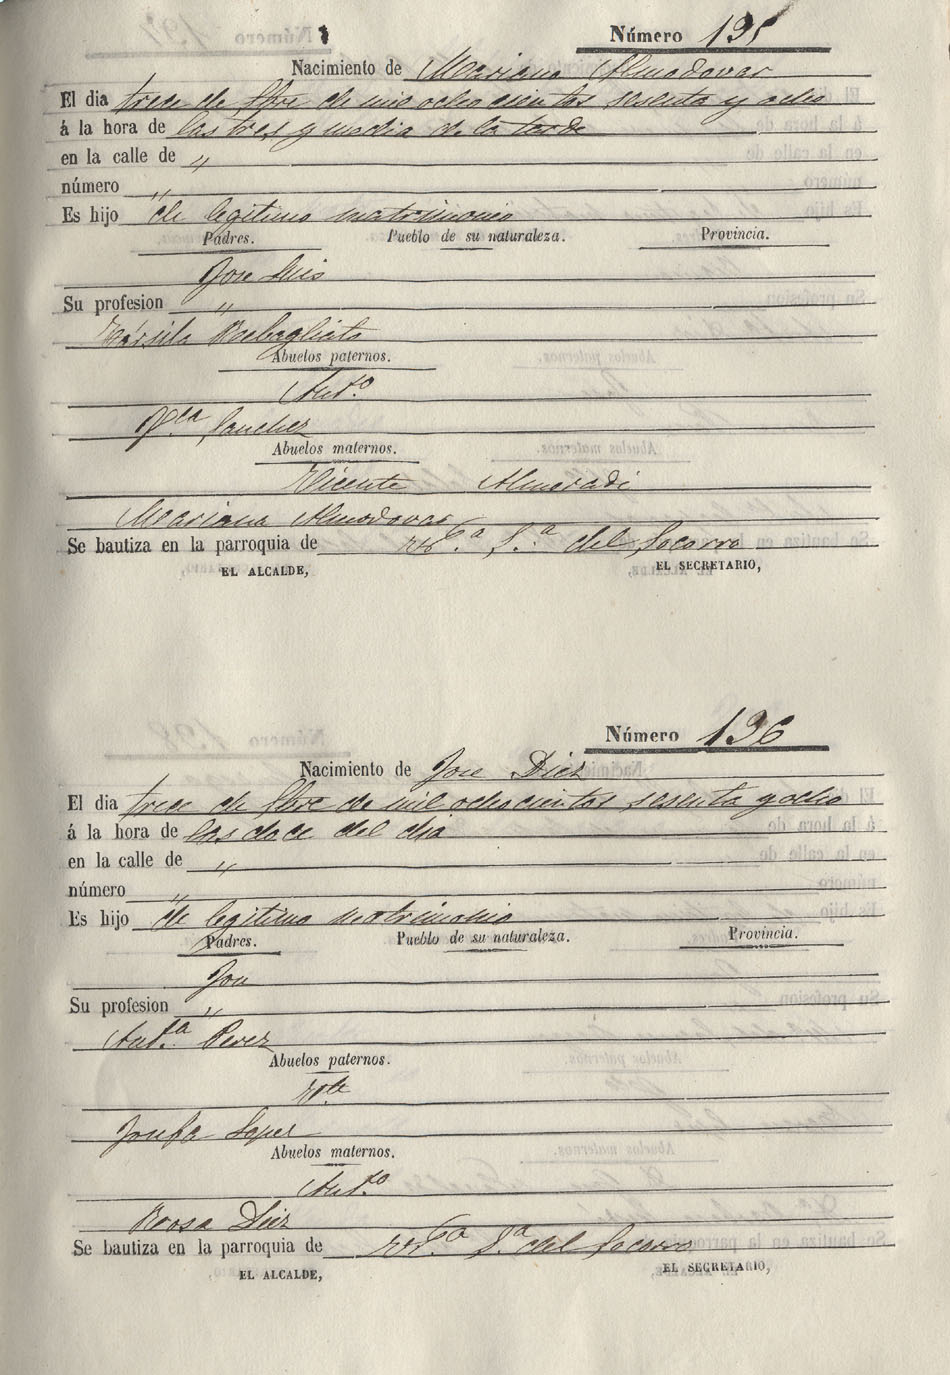 Número 195
Nacimiento de Mariana Almodovar
El dia trece de fbre de mil ochocientos sesenta y ocho
á la hora de las tres y media de la tarde
en la calle de "
número "
Es hijo de legitimo matrimonio
Padres. Pueblo de su naturaleza. Provincia.
Jose Luis
Su profesion "
Abuelos paternos.
Antº
Fca Sanchez
Abuelos maternos.
Vicente Almoradi
Mariana Almodovar
Se bautiza en la parroquia de Ntrª Sª del Socorro
EL ALCALDE, EL SECRETARIO,
Número 196
Nacimiento de Jose Diez
El dia trece de fbre de mil ochocientos sesenta y ocho
á la hora de las doce del dia
en la calle de "
número "
Es hijo de legitimo matrimonio
Padres. Pueblo de su naturaleza. Provincia.
Jose
Su profesion "
Antª Perez
Abuelos paternos.
Josefa Lopez
Abuelos maternos.
Antº
Roosa Diez
Se bautiza en la parroquia de Ntrª Sª del Socorro
EL ALCALDE, EL SECRETARIO,